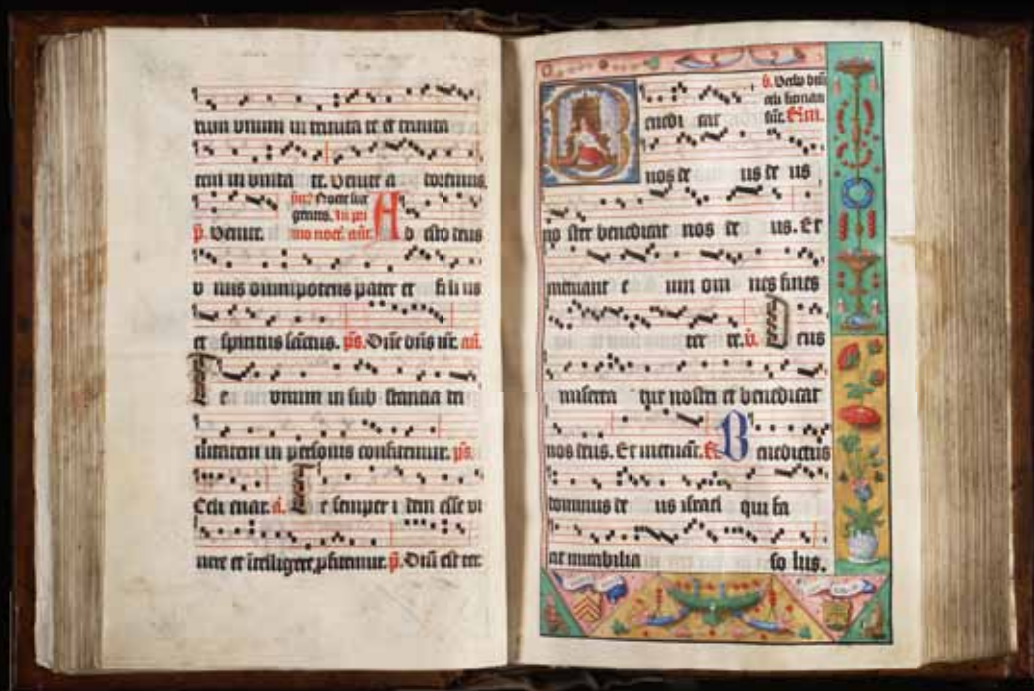 num unum in trinita te et trinita
tem in unita te. Venite a doremus.
p. Venite.
A d esto deus
u nus omnipotens pater et fili us
et spiritus sāctus. p̄s. Dn̄e dn̄s nr̄. an̄.
T e unum in sub stancia tri
nitatem in personis confitemur. p̄s.
Celi enar. a. T e semper i dem esse vi
vere et ītelligere ꝓfitemur. p̄. Dn̄i est ter.
B enedi cat
nos de us de us
no ster benedicat nos de us. Et
metuant e um om nes fines
ter re. v. D eus
miserea tur nostri et benedicat
nos deus. Et metuāt. R. B enedictus
dominus de us israel qui fa
cit mirabilia so lus.